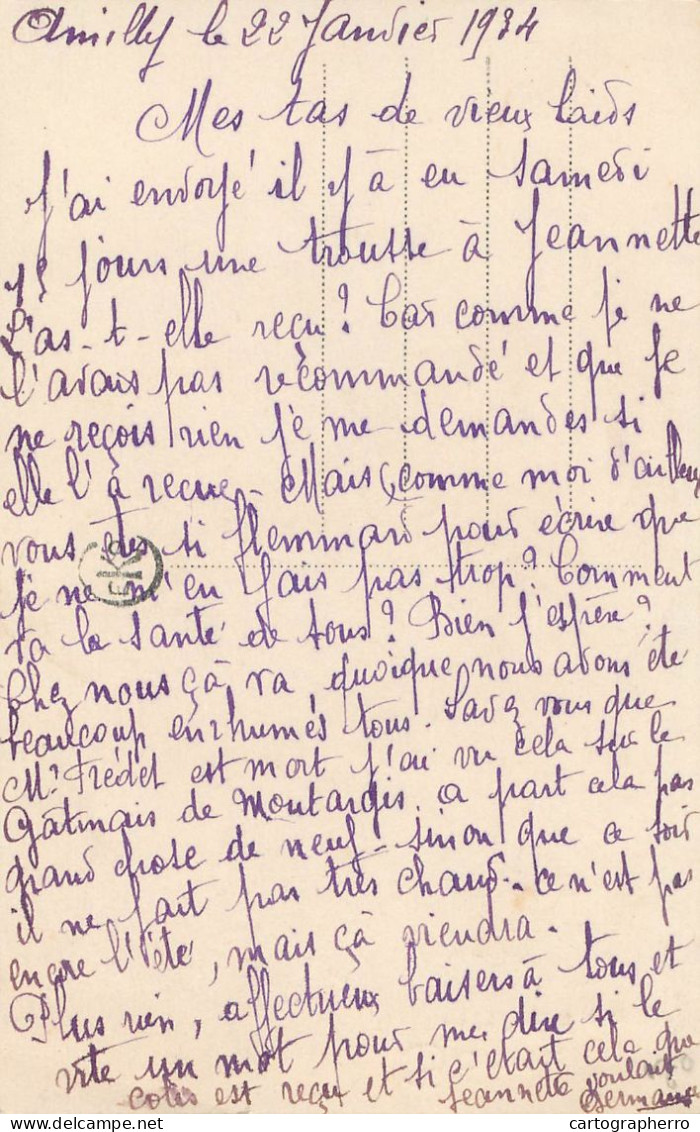 Amilly le 22 Janvier 1934
Mes tas de vieux laids
J'ai envoyé il y à eu samedi
15 jours une trousse à Jeannette
L'as-t-elle reçu? Car comme je ne
l'avais pas recommandé et que je
ne reçois rien je me demandes si
elle l'à recue - Mais, comme moi d'ailleurs
vous êtes si flemmard pour écrire que
je ne m'en fais pas trop? Comment
va la santé de tous? Bien j'espère?
Chez nous çà va, quoique nous avons été
beaucoup enrhumés tous. Savez vous que
Mr. Frédet est mort j'ai vu cela sur le
Gâtinais de Montargis. a part cela pas
grand chose de neuf - sinon que ce soir
il ne fait pas très chaud. ce n'est pas
encore l'été, mais çà viendra.
Plus rien, affectueux baisers à tous et
vite un mot pour me dire si le
colis est reçu et si c'était cela que
Jeannette voulait
Germaine
EK
cartographerro.com